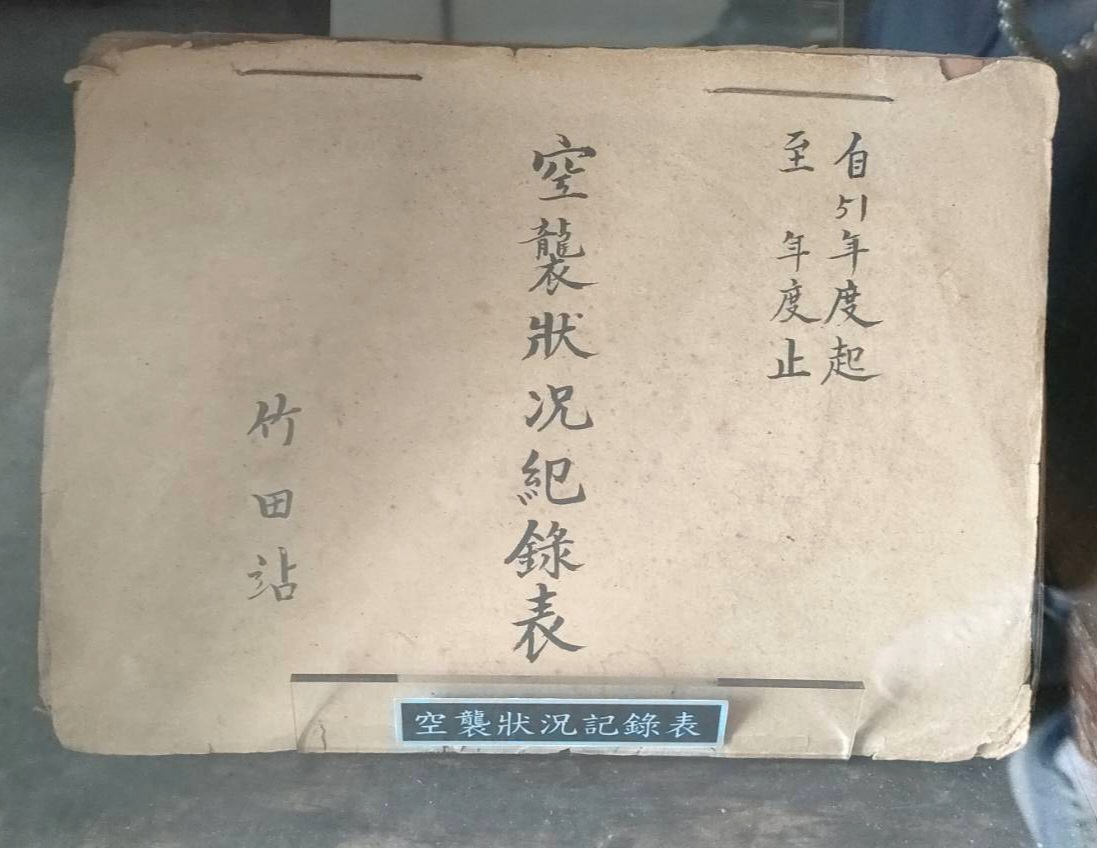 自51年度起
至 年度止
空襲狀况紀錄表
竹田站
空襲狀況記錄表